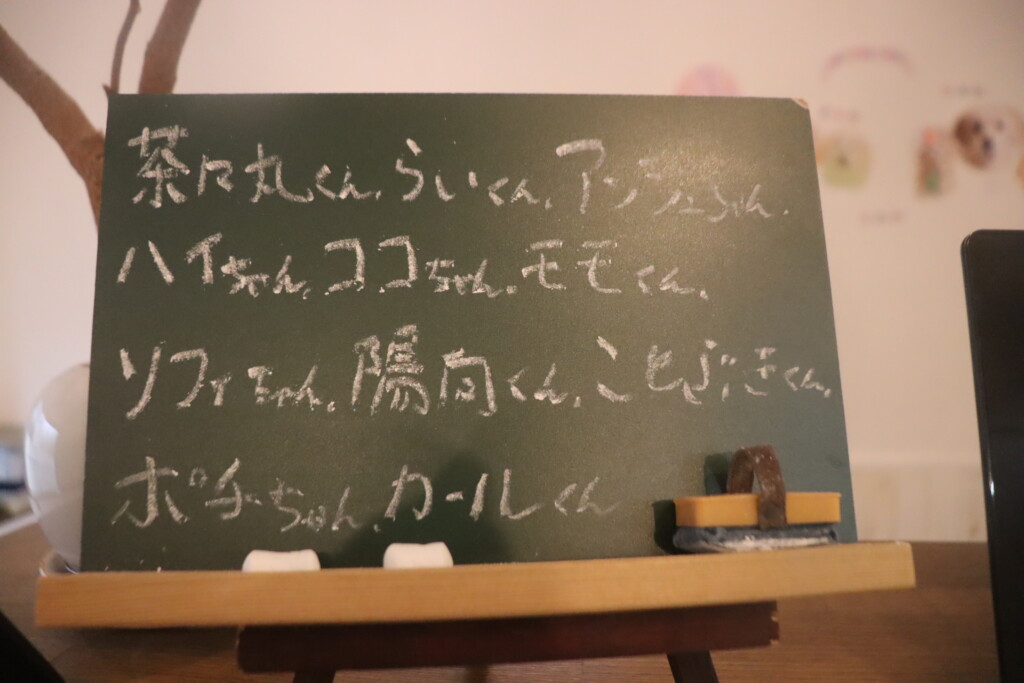 茶々丸くん、らいくん、アンジュちゃん、
ハイちゃん、ココちゃん、モモくん、
ソフィちゃん、陽向くん、ことぶきくん、
ポチちゃん、カールくん